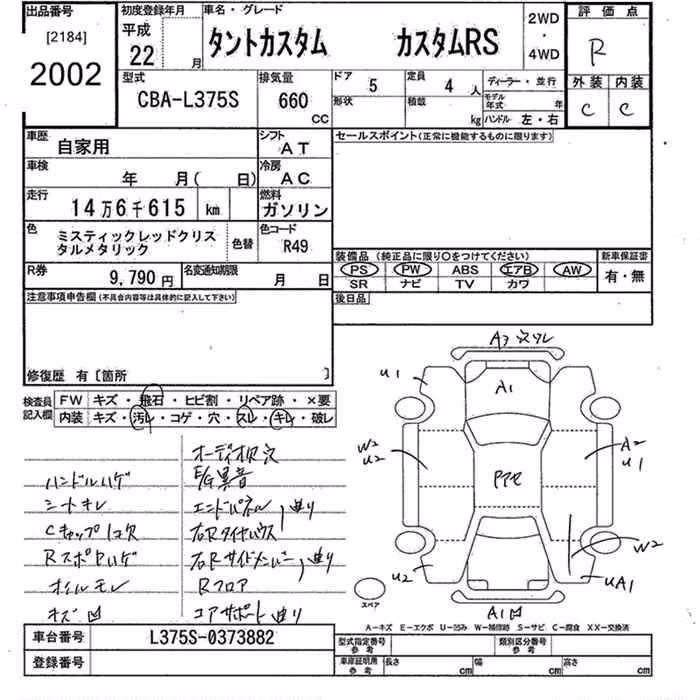 出品番号
[2184]
2002
初度登録年月
平成
22 月
車名・グレード
タントカスタム カスタムRS
2WD
・
4WD
評価点
R
外装 内装
C C
型式
CBA-L375S
排気量
660
CC
ドア
5
定員
4 人
形状
積載
kg
ディーラー・並行
モデル年式 年
ハンドル 左・右
車歴
自家用
シフト
AT
車検
年 月( 日)
冷房
AC
走行
14万6千615 km
燃料
ガソリン
色
ミスティックレッドクリス
タルメタリック
色替
色コード
R49
R券
9,790 円
名変通知期限
月 日
セールスポイント(正常に機能するものに限ります)
装備品 (純正品に限り○をつけてください)
PS PW ABS エアB AW
SR ナビ TV カワ
新車保証書
有・無
後日品
注意事項申告欄(不具合内容等は具体的に記入して下さい)
修復歴 有〔箇所 〕
検査員
記入欄
FW キズ・飛石・ヒビ割・リペア跡・×要
内装 キズ・汚れ・コゲ・穴・スレ・キレ・破レ
オーディオ欠
ハンドルハゲ
E/G異音
シートキレ
エンドパネル 曲り
Cキャップ1コ欠
右Rタイヤハウス
Rスポヤハゲ
右Rサイドメンバー 曲り
オイルモレ
Rフロア
キズ凹
コアサポート曲り
A3
A1
U1
W2
U2
A2
U1
W2
U2
UA1
A1
スペア
A－キズ E－エクボ U－凹み W－補修跡 S－サビ C－腐食 XX－交換済
車台番号
L375S-0373882
登録番号
型式指定番号
参考
類別区分番号
参考
車庫証明用
参考
長さ cm
幅 cm
高さ cm